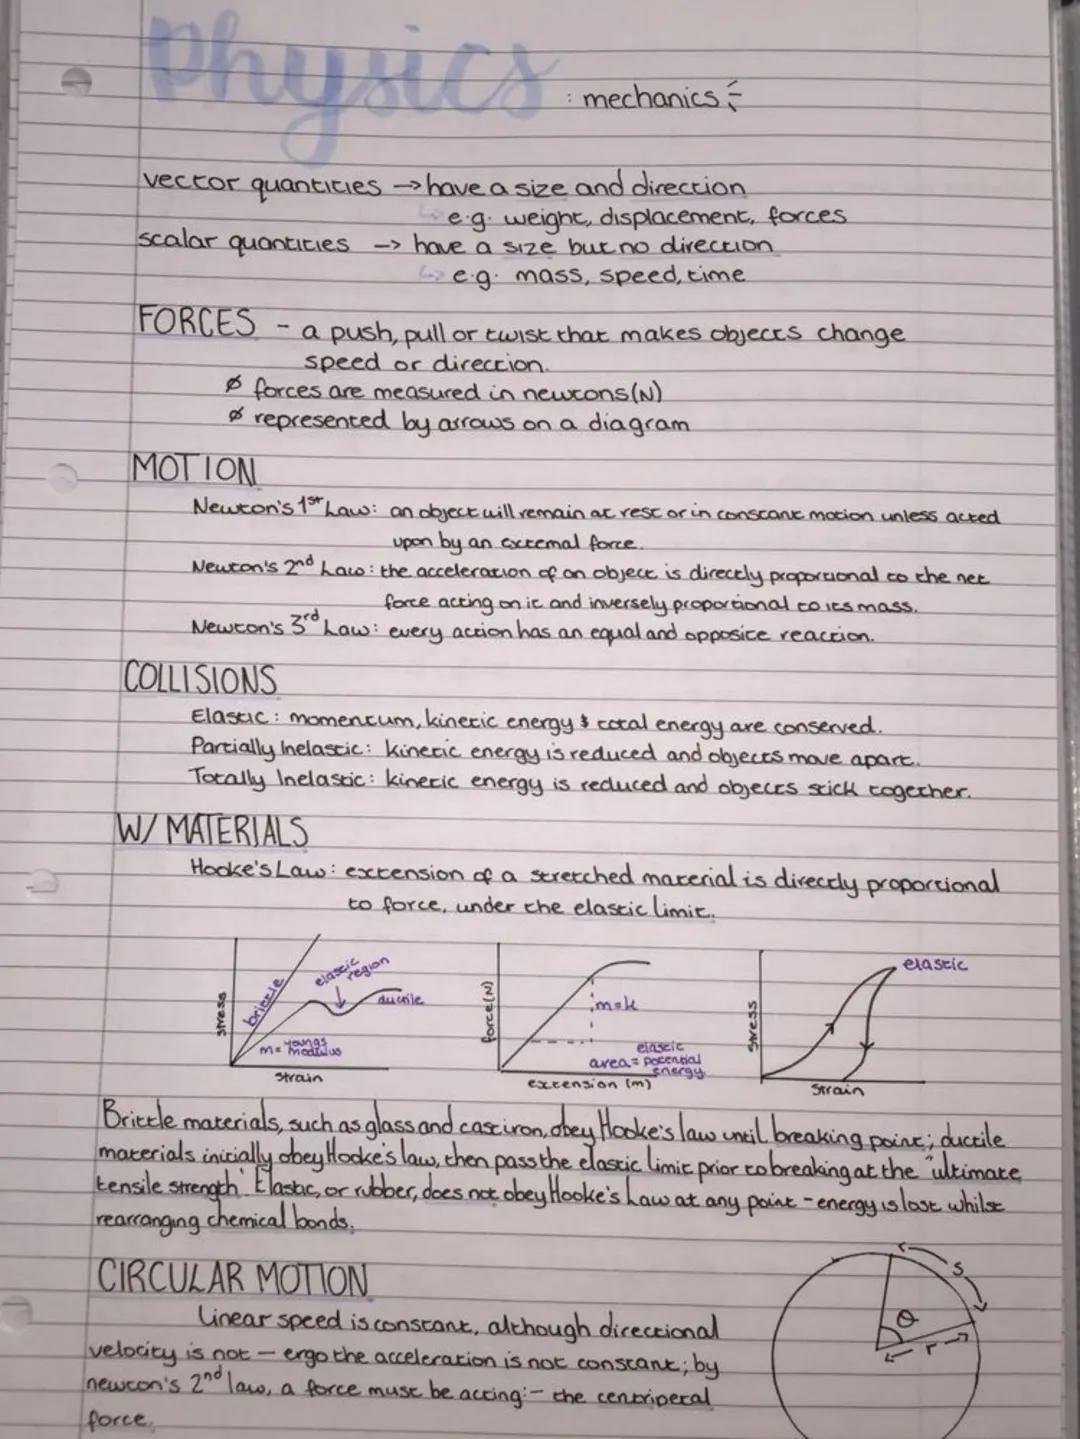 Physics : mechanics :-
vector quantities → have a size and direction
↳ e.g. weight, displacement, forces
scalar quantities → have a size but no direction
↳ e.g. mass, speed, time
FORCES - a push, pull or twist that makes objects change
speed or direction.
ø forces are measured in newtons (N)
ø represented by arrows on a diagram
MOTION
Newton's 1st Law: an object will remain at rest or in constant motion unless acted
upon by an external force.
Newton's 2nd Law: the acceleration of an object is directly proportional to the net
force acting on it and inversely proportional to its mass.
Newton's 3rd Law: every action has an equal and opposite reaction.
COLLISIONS
Elastic: momentum, kinetic energy & total energy are conserved.
Partially Inelastic: kinetic energy is reduced and objects move apart.
Totally Inelastic: kinetic energy is reduced and objects stick together.
W/ MATERIALS
Hooke's Law: extension of a stretched material is directly proportional
to force, under the elastic limit.
stress
brittle
elastic
region
ductile
m= youngs
modulus
strain
force (N)
m=k
elastic
area = potential
energy
extension (m)
stress
elastic
strain
Brittle materials, such as glass and cast iron, obey Hooke's law until breaking point; ductile
materials initially obey Hooke's law, then pass the elastic limit prior to breaking at the "ultimate
tensile strength". Elastic, or rubber, does not obey Hooke's Law at any point - energy is lost whilst
rearranging chemical bonds.
CIRCULAR MOTION
Linear speed is constant, although directional
velocity is not - ergo the acceleration is not constant; by
newton's 2nd law, a force must be acting:- the centripetal
force.
s
θ
r